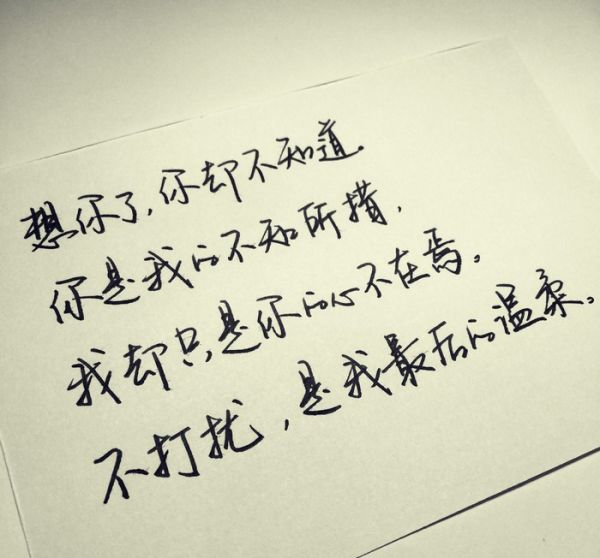 想你了,你却不知道.
你是我的不知所措,
我却只是你的心不在焉。
不打扰,是我最后的温柔。